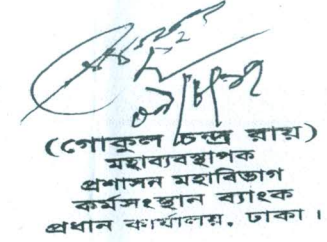 (গোকুল চন্দ্র রায়)
মহাব্যবস্থাপক
প্রশাসন মহাবিভাগ
কর্মসংস্থান ব্যাংক
প্রধান কার্যালয়, ঢাকা।